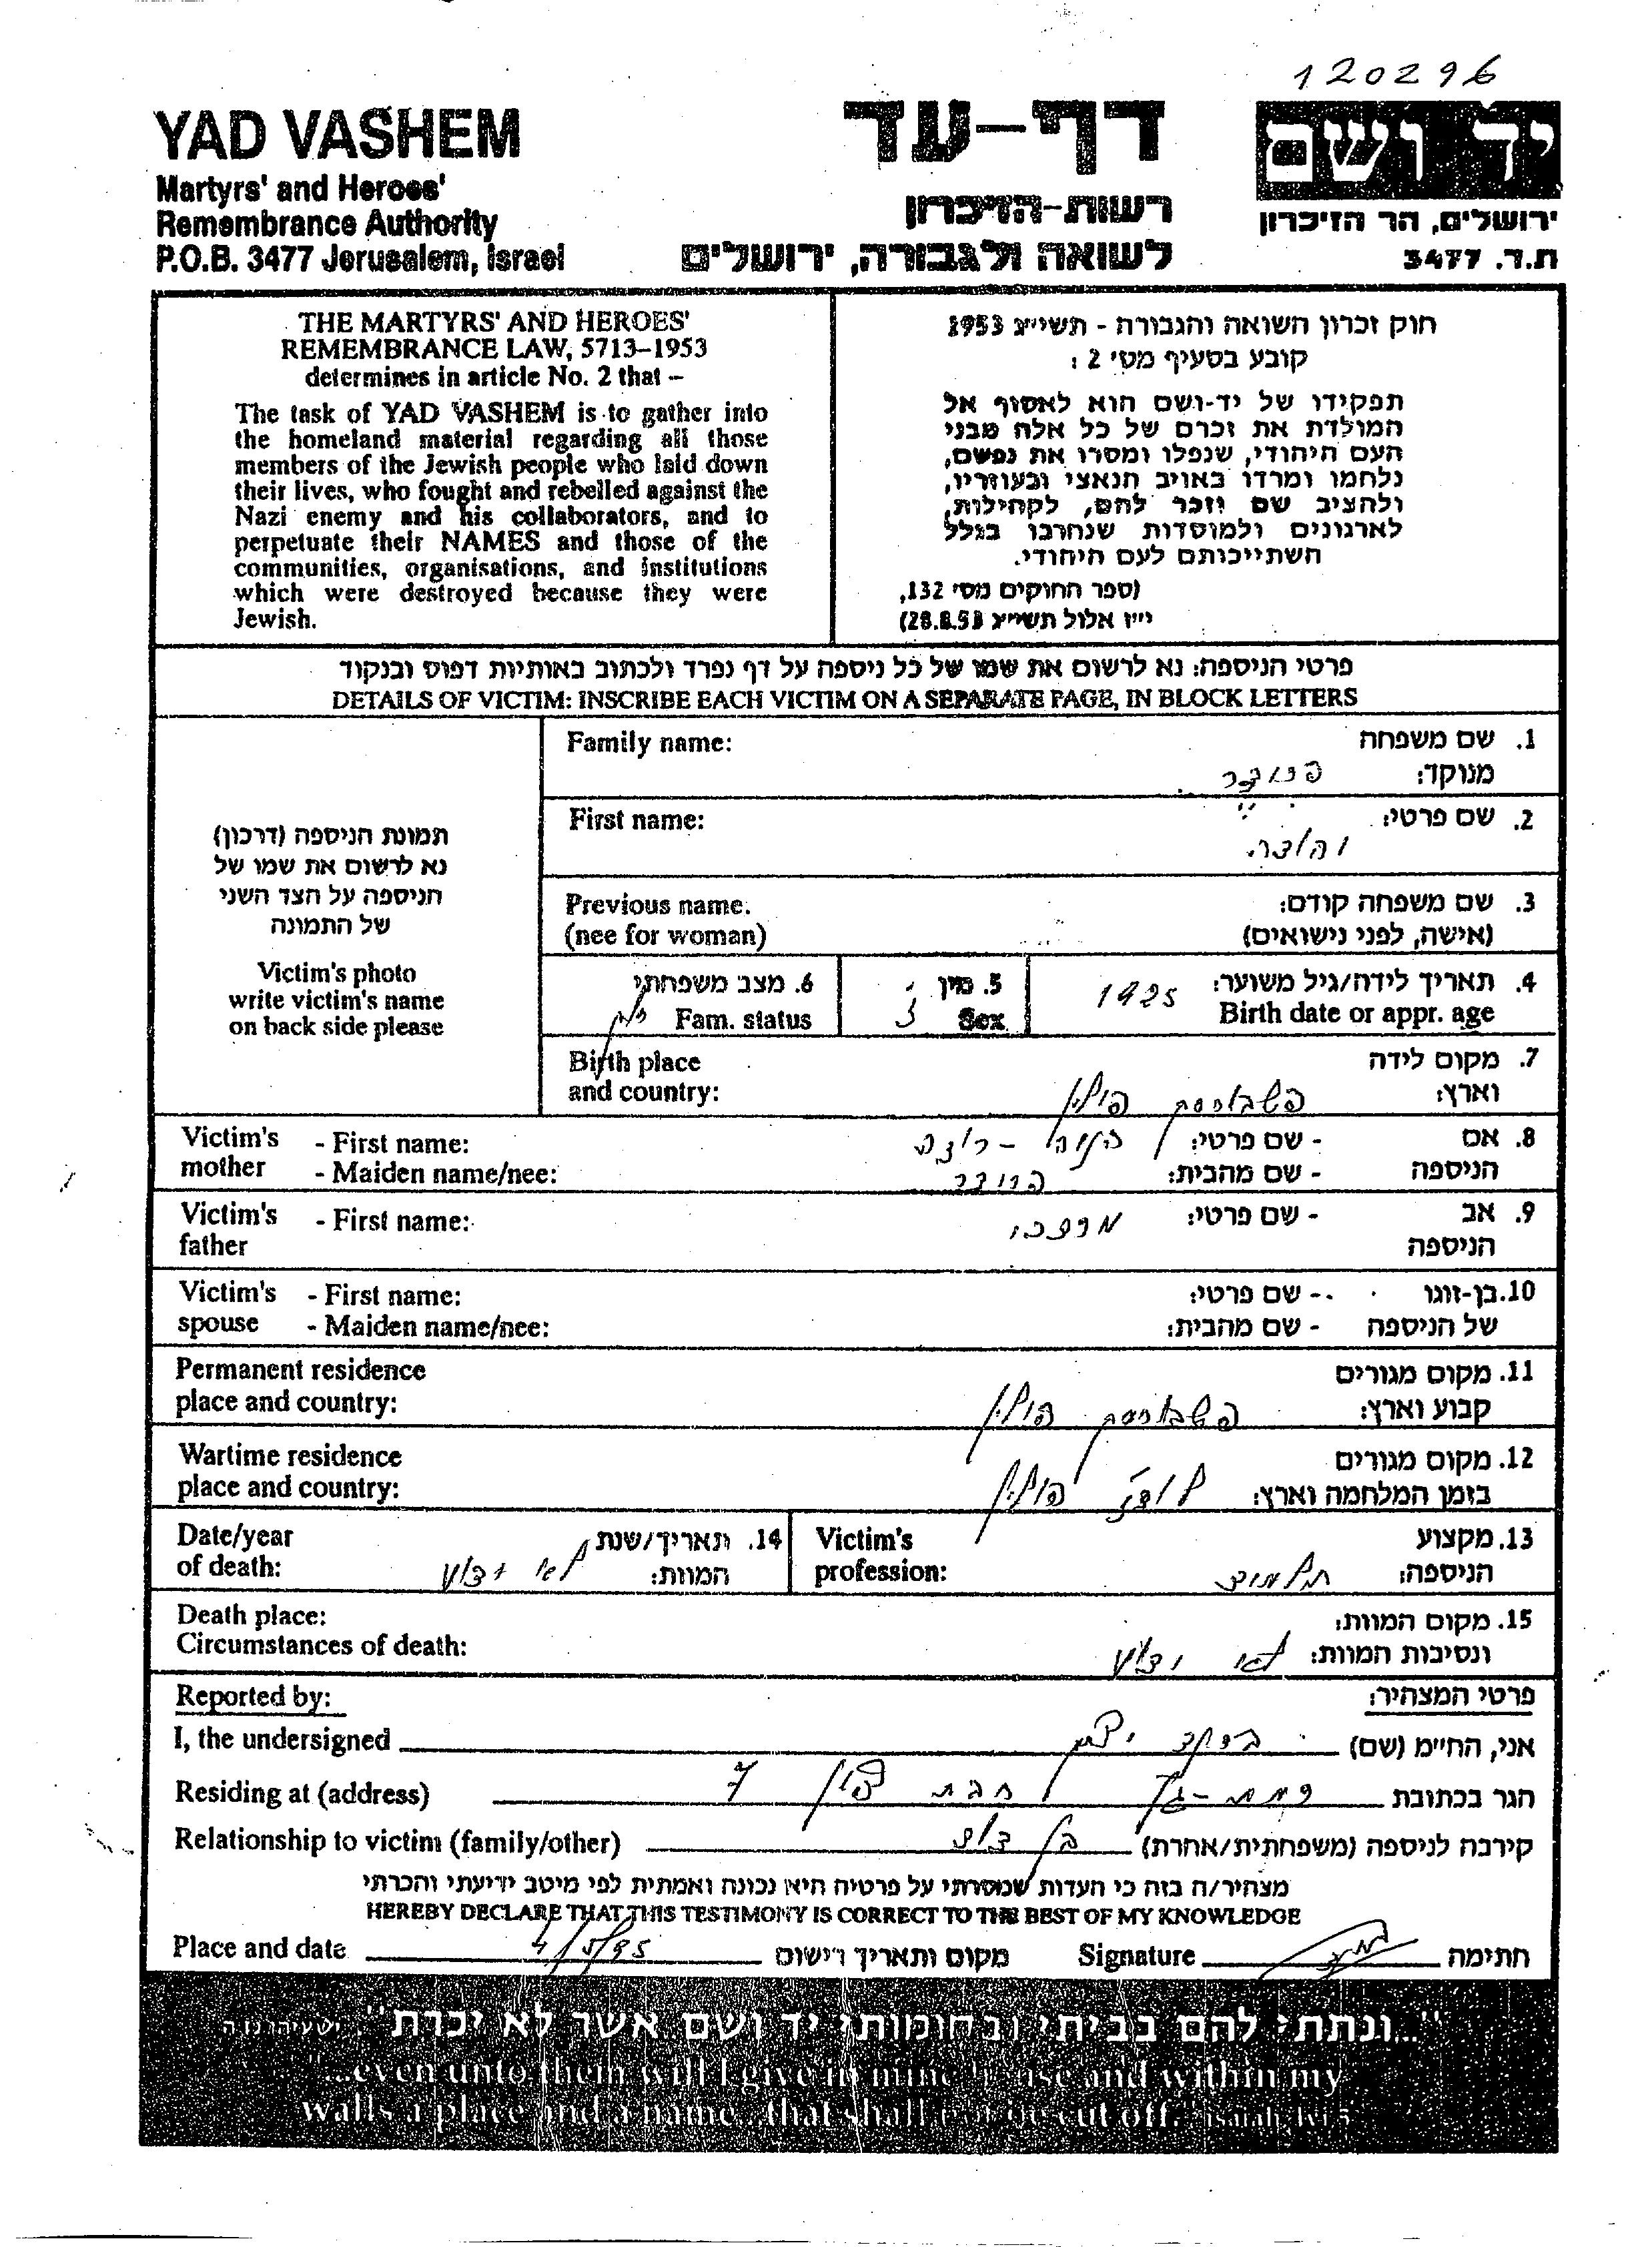 120296
YAD VASHEM
Martyrs' and Heroes'
Remembrance Authority
P.O.B. 3477 Jerusalem, Israel
דף-עד
רשות-הזיכרון
לשואה ולגבורה, ירושלים
יד ושם
ירושלים, הר הזיכרון
ת.ד. 3477
THE MARTYRS' AND HEROES'
REMEMBRANCE LAW, 5713–1953
determines in article No. 2 that –
The task of YAD VASHEM is to gather into
the homeland material regarding all those
members of the Jewish people who laid down
their lives, who fought and rebelled against the
Nazi enemy and his collaborators, and to
perpetuate their NAMES and those of the
communities, organisations, and institutions
which were destroyed because they were
Jewish.
חוק זכרון השואה והגבורה - תשי״ג 1953
קובע בסעיף מס׳ 2 :
תפקידו של יד-ושם הוא לאסוף אל
המולדת את זכרם של כל אלה מבני
העם היהודי, שנפלו ומסרו את נפשם,
נלחמו ומרדו באויב הנאצי ובעוזריו,
ולהציב שם וזכר להם, לקהילות,
לארגונים ולמוסדות שנחרבו בגלל
השתייכותם לעם היהודי.
(ספר החוקים מס׳ 132,
י״ז אלול תשי״ג 28.8.53)
פרטי הניספה: נא לרשום את שמו של כל ניספה על דף נפרד ולכתוב באותיות דפוס ובנקוד
DETAILS OF VICTIM: INSCRIBE EACH VICTIM ON A SEPARATE PAGE, IN BLOCK LETTERS
תמונת הניספה (דרכון)
נא לרשום את שמו של
הניספה על הצד השני
של התמונה
Victim's photo
write victim's name
on back side please
Family name: 1. שם משפחה
מנוקד:
First name: 2. שם פרטי:
Previous name. 3. שם משפחה קודם:
(nee for woman) (אישה, לפני נישואים)
4. תאריך לידה/גיל משוער: 1925
Birth date or appr. age
5. מין ז
Sex
6. מצב משפחתי
Fam. status
Birth place 7. מקום לידה
and country: וארץ: פולין
Victim's - First name: 8. אם - שם פרטי:
mother - Maiden name/nee: הניספה - שם מהבית:
Victim's - First name: 9. אב - שם פרטי: מרדכי
father הניספה
Victim's - First name: 10. בן-זוגו - שם פרטי:
spouse - Maiden name/nee: של הניספה - שם מהבית:
Permanent residence 11. מקום מגורים
place and country: קבוע וארץ: פולין
Wartime residence 12. מקום מגורים
place and country: בזמן המלחמה וארץ: לודז׳ פולין
Date/year 14. תאריך/שנת
of death: המוות: לא ידוע
Victim's 13. מקצוע
profession: הניספה: תלמיד
Death place: 15. מקום המוות:
Circumstances of death: ונסיבות המוות: לא ידוע
Reported by: פרטי המצהיר:
I, the undersigned אני, החי״מ (שם)
Residing at (address) הגר בכתובת רמת-גן חבת ציון 7
Relationship to victim (family/other) קירבה לניספה (משפחתית/אחרת) בן דוד
מצהיר/ה בזה כי העדות שמסרתי על פרטיה היא נכונה ואמתית לפי מיטב ידיעתי והכרתי
HEREBY DECLARE THAT THIS TESTIMONY IS CORRECT TO THE BEST OF MY KNOWLEDGE
Place and date 4/5/95 מקום ותאריך רישום Signature חתימה
"...ונתתי להם בביתי ובחומותי יד ושם אשר לא יכרת" ישעיהו נו,ה
"...even unto them will I give in mine house and within my
walls a place and a name...that shall not be cut off." isaiah, lvi,5